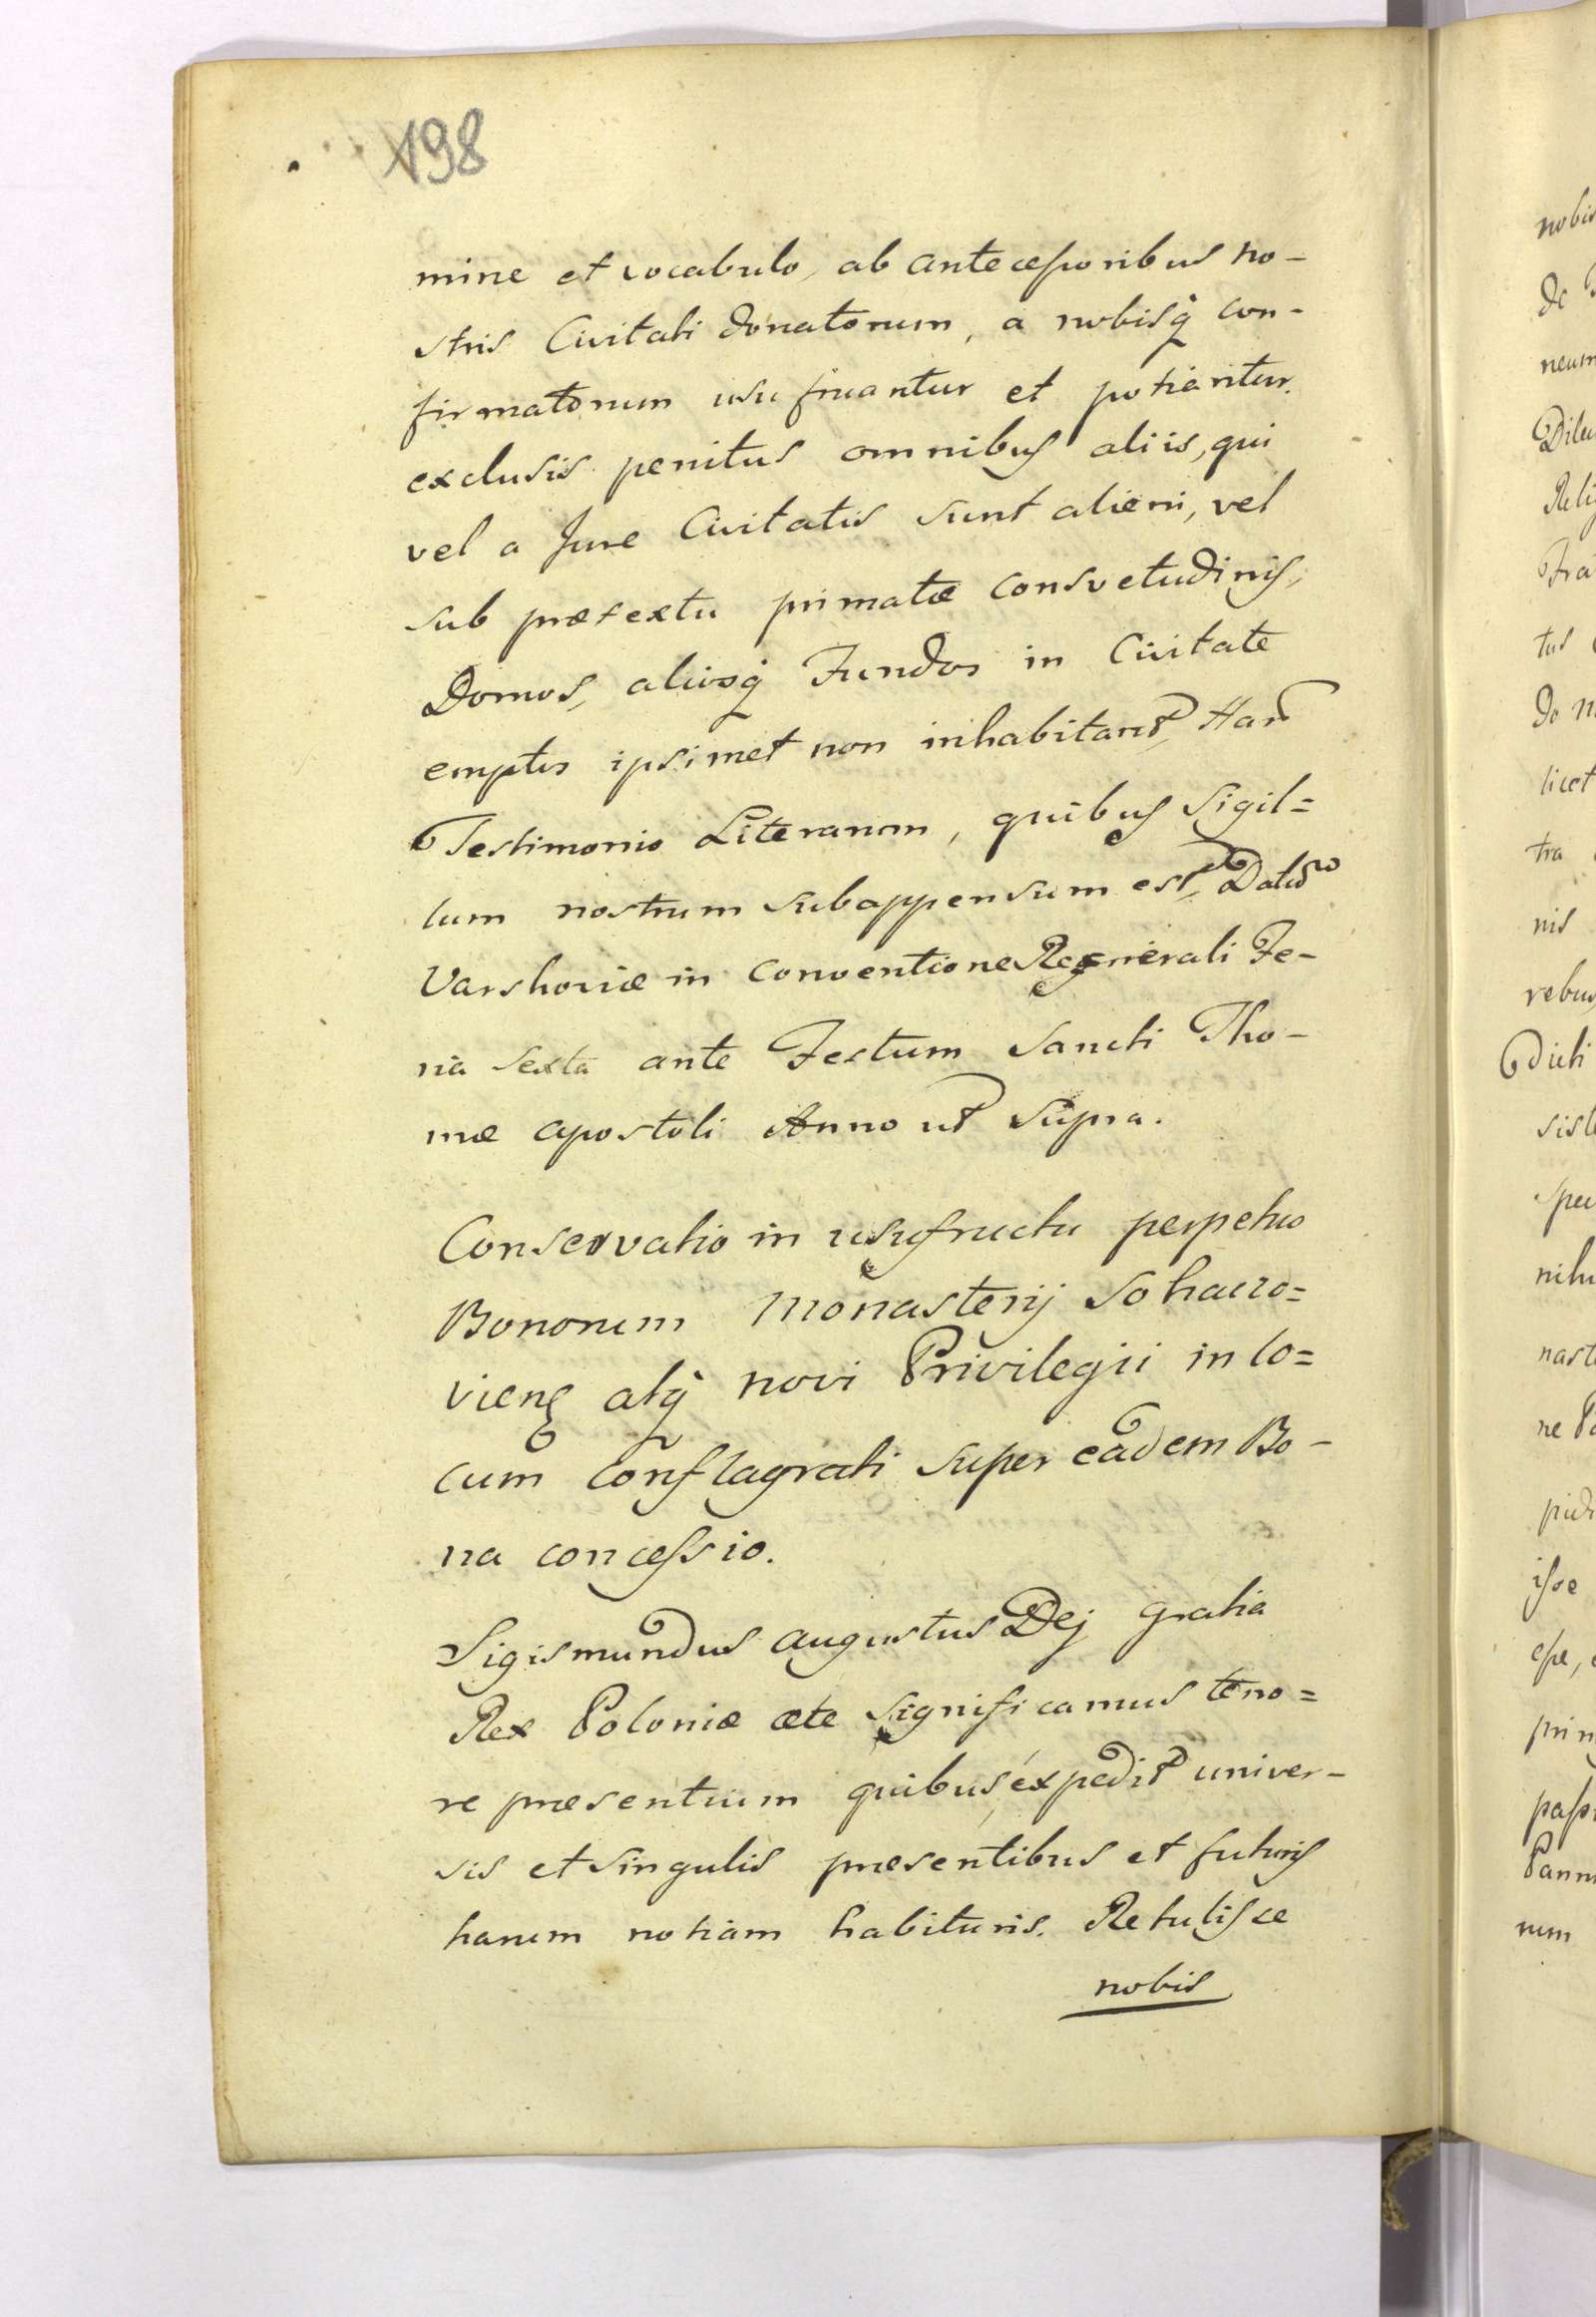 198
mine et vocabulo, ab antecessoribus no-
stris Civitati donatorum, a nobisq́ con-
firmatorum usu fruantur et potiantur.
exclusis penitus omnibus aliis, qui
vel a Jure Civitatis sunt alieni, vel
sub prætextu primatæ consvetudinis,
Domos, aliosq́ Fundos in Civitate
emptos ipsimet non inhabitant, Harũ
Testimonio Literarum, quibus Sigil=
lum nostrum subappensum est, Datũ
Varshoviæ in Conventione Regnierali Fe-
ria sexta ante Festum Sancti Tho-
mæ apostoli Anno ut Supra.
Conservatio in usufructu perpetuo
Bonorum Monasterij Sohaczo=
vieñ atq́ novi Privilegii in lo=
cum conflagrati super eadem Bo-
na concessio.
Sigismundus Augustus Dej Gratia
Rex Poloniæ ætc Significamus teno=
re præsentium quibus expedit univer-
sis et singulis præsentibus et futuris
harum notiam habituris. Retulisce
nobis
nobis
de
neum
tus
licet
tra
nis
rebus
dicti